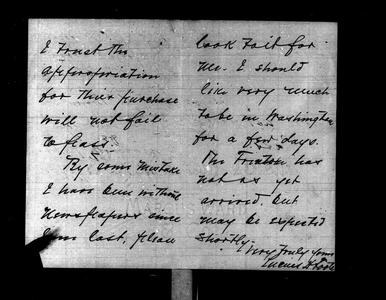 I trust the
appropriation
for their purchase
will not fail
to pass.
By some mistake
I have been without
newspapers since
last, please
look out for
me. I should
like very much
to be in Washington
for a few days.
The Triton has
not as yet
arrived, but
may be expected
shortly.
Very truly yours